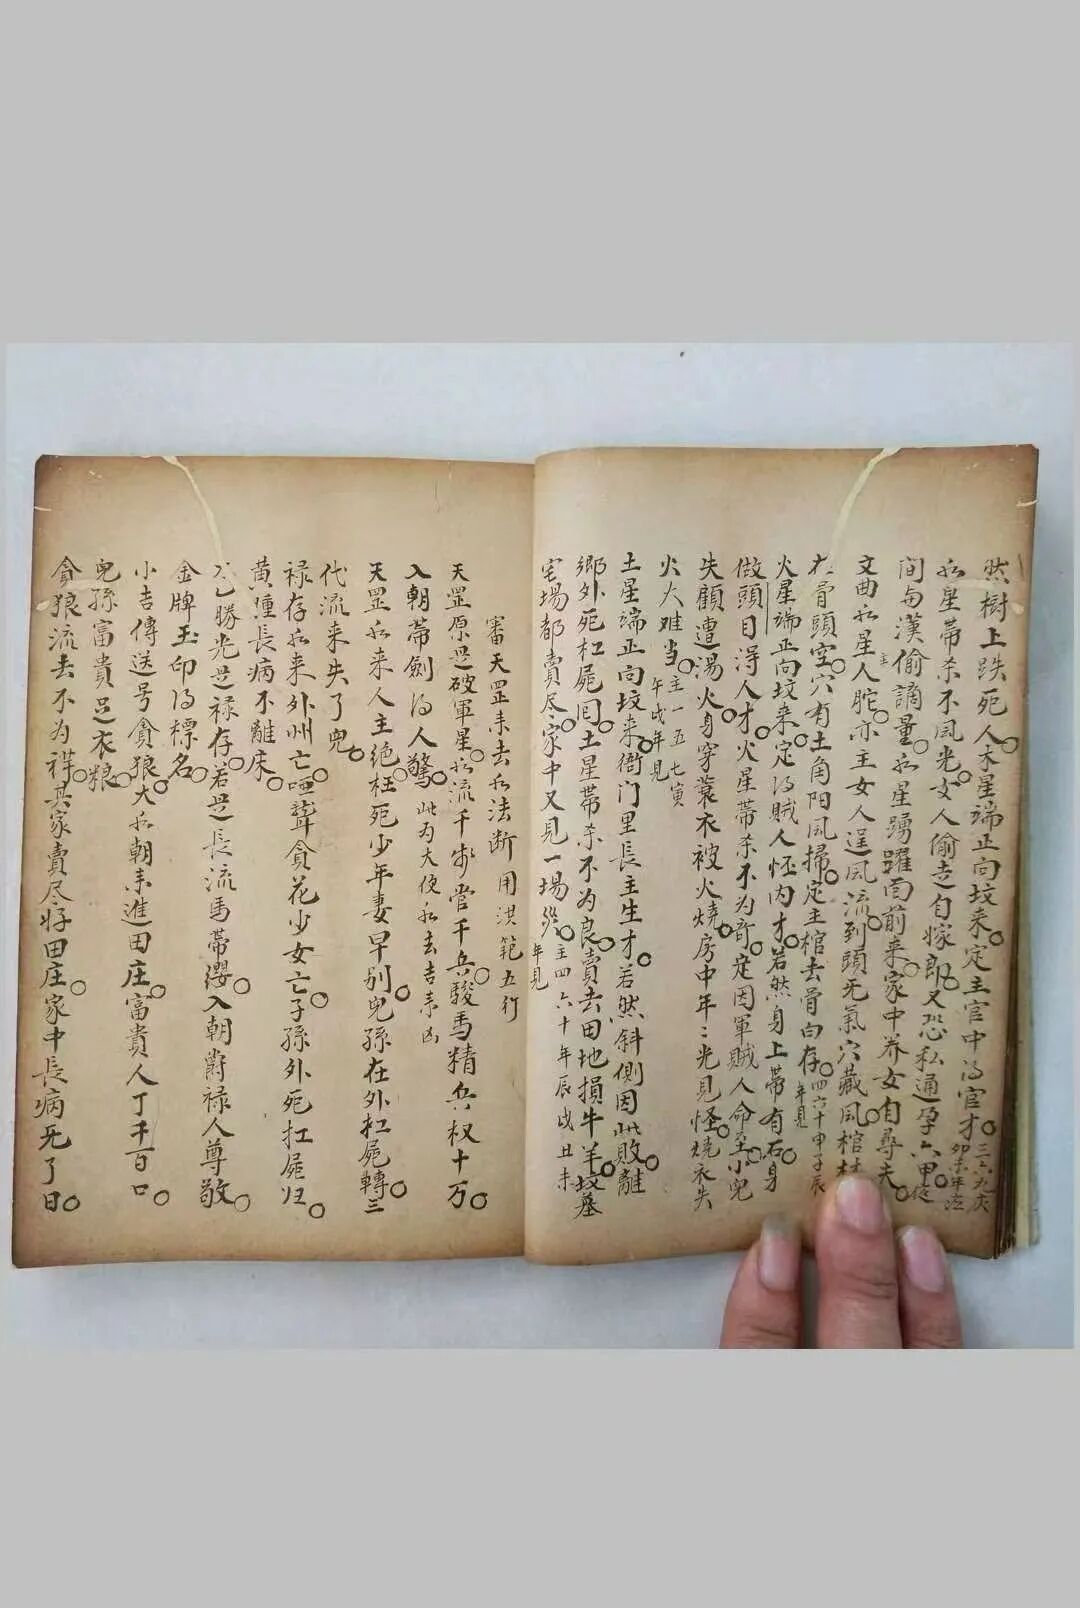 然樹上跌死人。木星端正向坟来。定主官中得官才。三六九亥卯未年应
水星帶杀不風光。女人偷走自嫁郎。又恐私通孕六甲。
间与漢偷謫量。水星踴躍面前来。家中养女自尋夫。
文曲水星主人舵。亦主女人逞風流。到頭无氣穴藏風。棺
骨頭空。穴有土角陷風掃。定主棺去骨白存。四六十申子辰年見
火星端正向坟来。定得賊人怀内才。若然身上帶有石。身
做頭目得人才。火星帶杀不为奇。定因軍賊人命至。小兒
失顧遭湯火。身穿蓑衣被火燒。房中年〻光見怪。燒衣失
火火难当。主一五七寅午戌年見
土星端正向坟来。衙门里長主生才。若然斜側因此敗。離
鄉外死扛屍囘。土星帶杀不为良。賣去田地損牛羊。坟墓
宅場都賣尽。家中又見一場。主四六十年辰戌丑未年見
審天罡来去水法断用洪範五行
天罡原是破軍星。水流千步管千兵。駿馬精兵权十万。
入朝帶劍得人驚。此为大使水去吉来凶
天罡水来人主绝。枉死少年妻早别。兒孫在外扛屍轉。三
代流来失了兒。
禄存水来外州亡。哑聾貪花少女亡。子孫外死扛屍归。
黄腫長病不離床。
勝光是禄存。若是長流馬帶纓。入朝爵禄人尊敬。
金牌玉印得標名。
小吉傳送号貪狼。大水朝来進田庄。富貴人丁千百口。
兒孫富貴足衣粮。
貪狼流去不为祥。其家賣尽好田庄。家中長病死了日。